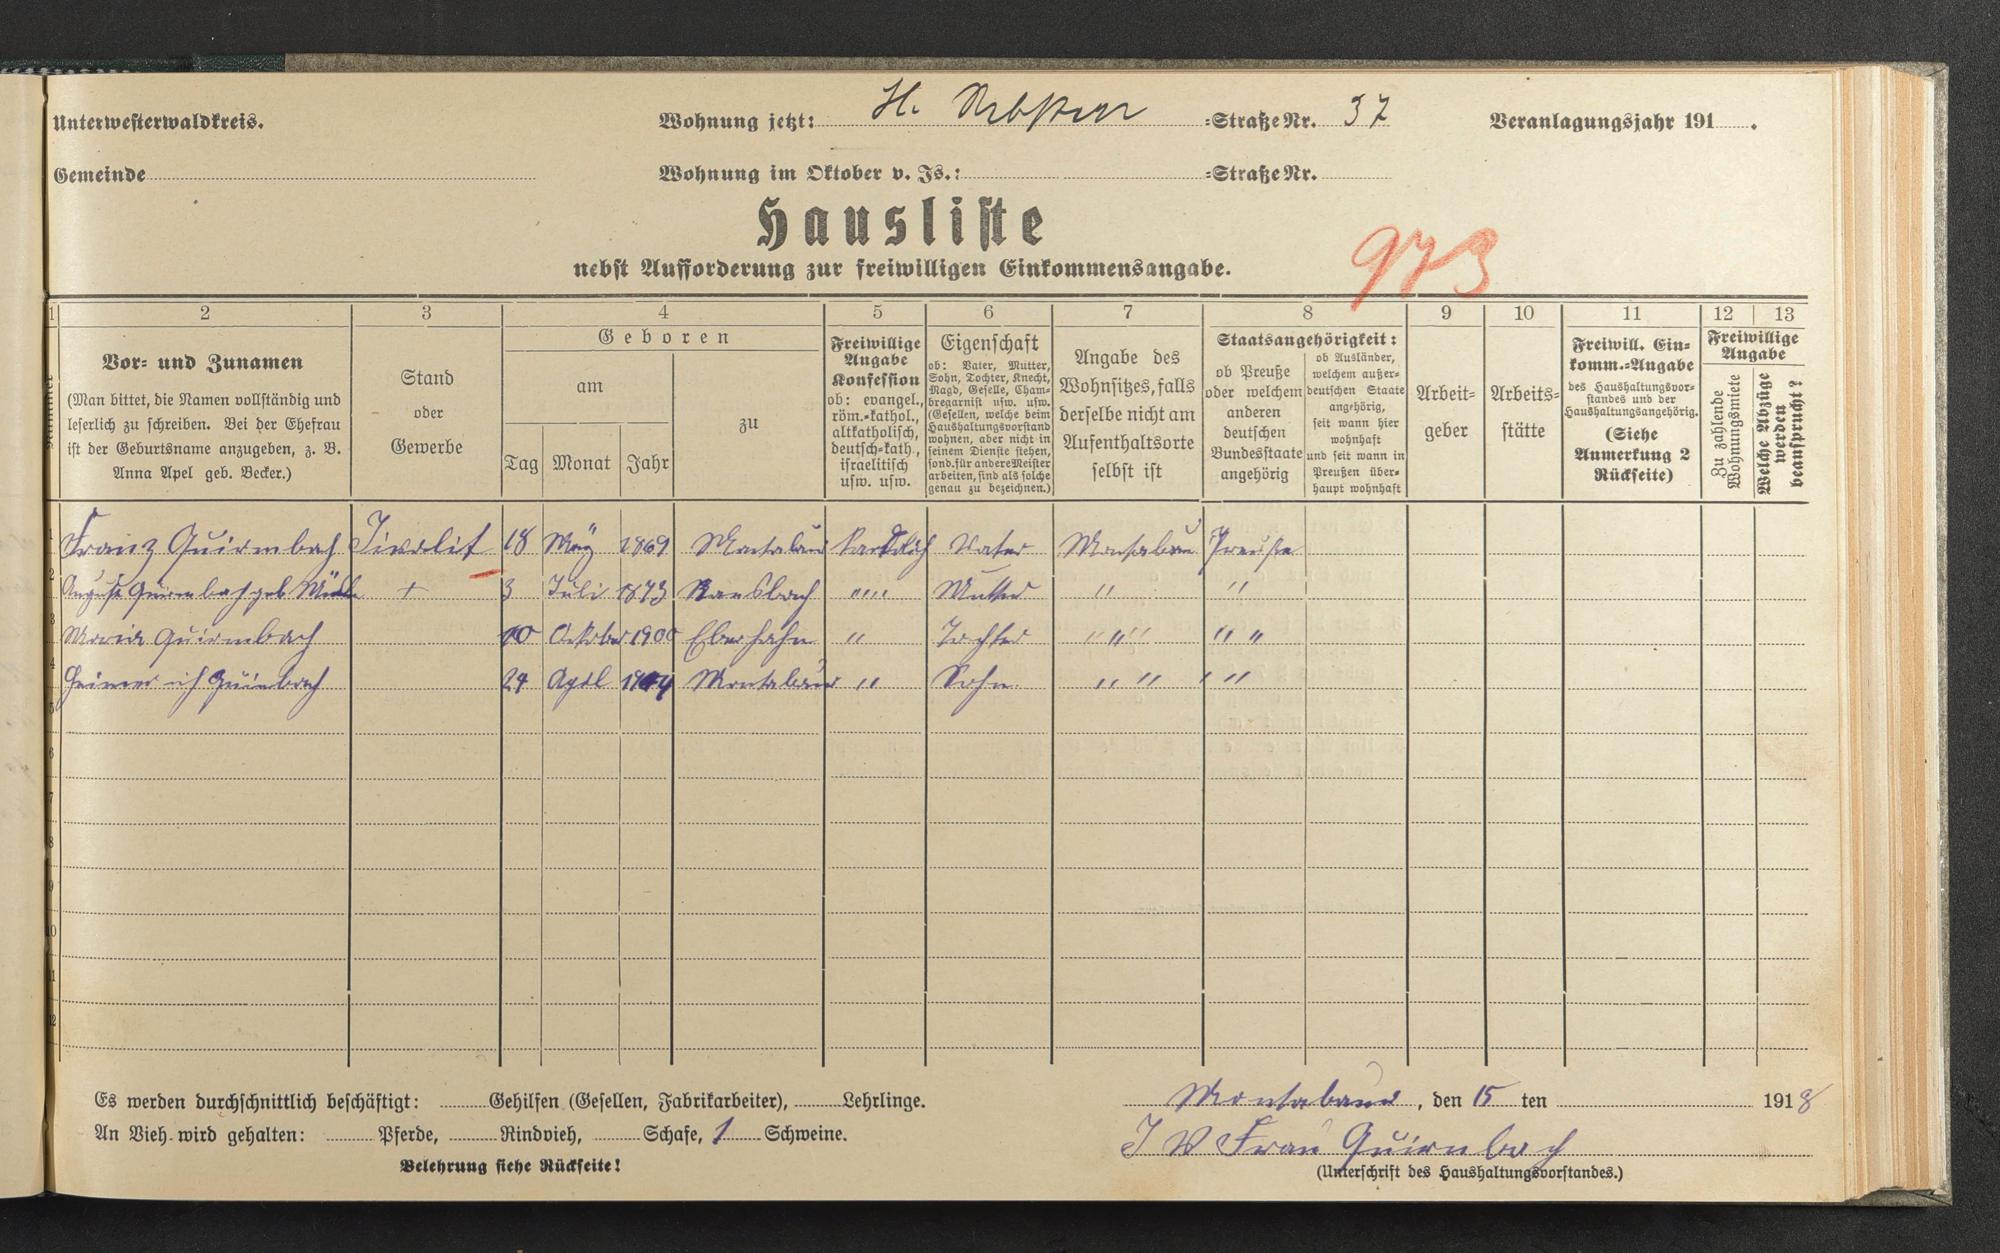 Unterwesterwaldkreis. Wohnung jetzt: H. =Straße Nr. 37 Veranlagungsjahr 191 .
Gemeinde Wohnung im Oktober v. Js.: =Straße Nr.
Hausliste
nebst Aufforderung zur freiwilligen Einkommensangabe.
973
1 2 3 4 5 6 7 8 9 10 11 12 13
Nummer
Vor- und Zunamen
(Man bittet, die Namen vollständig und
leserlich zu schreiben. Bei der Ehefrau
ist der Geburtsname anzugeben, z. B.
Anna Apel geb. Becker.)
Stand
oder
Gewerbe
Geboren
am
Tag Monat Jahr
zu
Freiwillige
Angabe
Konfession
ob: evangel.,
röm.=kathol.,
altkatholisch,
deutsch=kath.,
israelitisch
usw. usw.
Eigenschaft
ob: Vater, Mutter,
Sohn, Tochter, Knecht,
Magd, Geselle, Cham-
bregarnist usw. usw.
(Gesellen, welche beim
Haushaltungsvorstand
wohnen, aber nicht in
seinem Dienste stehen,
sond. für andere Meister
arbeiten, sind als solche
genau zu bezeichnen.)
Angabe des
Wohnsitzes, falls
derselbe nicht am
Aufenthaltsorte
selbst ist
Staatsangehörigkeit:
ob Preuße
oder welchem
anderen
deutschen
Bundesstaate
angehörig
ob Ausländer,
welchem außer=
deutschen Staate
angehörig,
seit wann hier
wohnhaft
und seit wann in
Preußen über=
haupt wohnhaft
Arbeit=
geber
Arbeits=
stätte
Freiwill. Ein=
komm.=Angabe
des Haushaltungsvor=
standes und der
Haushaltungsangehörig.
(Siehe
Anmerkung 2
Rückseite)
Freiwillige
Angabe
Zu zahlende
Wohnungsmiete
Welche Abzüge
werden
beansprucht?
1 Franz Quirmbach 18 May 1869 Montabaur Vater Montabaur Preuße
2 August Quirmbach geb 3 Juli 1873 Ransbach "" Mutter " "
3 Maria Quirmbach 10 Oktober 1900 Eberhahn " Tochter " " " "
4 Quirmbach 24 April Montabaur " Sohn " " " "
5
6
7
8
9
10
11
12
Es werden durchschnittlich beschäftigt: Gehilfen (Gesellen, Fabrikarbeiter), Lehrlinge.
An Vieh wird gehalten: Pferde, Rindvieh, Schafe, 1 Schweine.
Belehrung siehe Rückseite!
Montabaur, den 15 ten 1918
I V Frau Quirnbach
(Unterschrift des Haushaltungsvorstandes.)